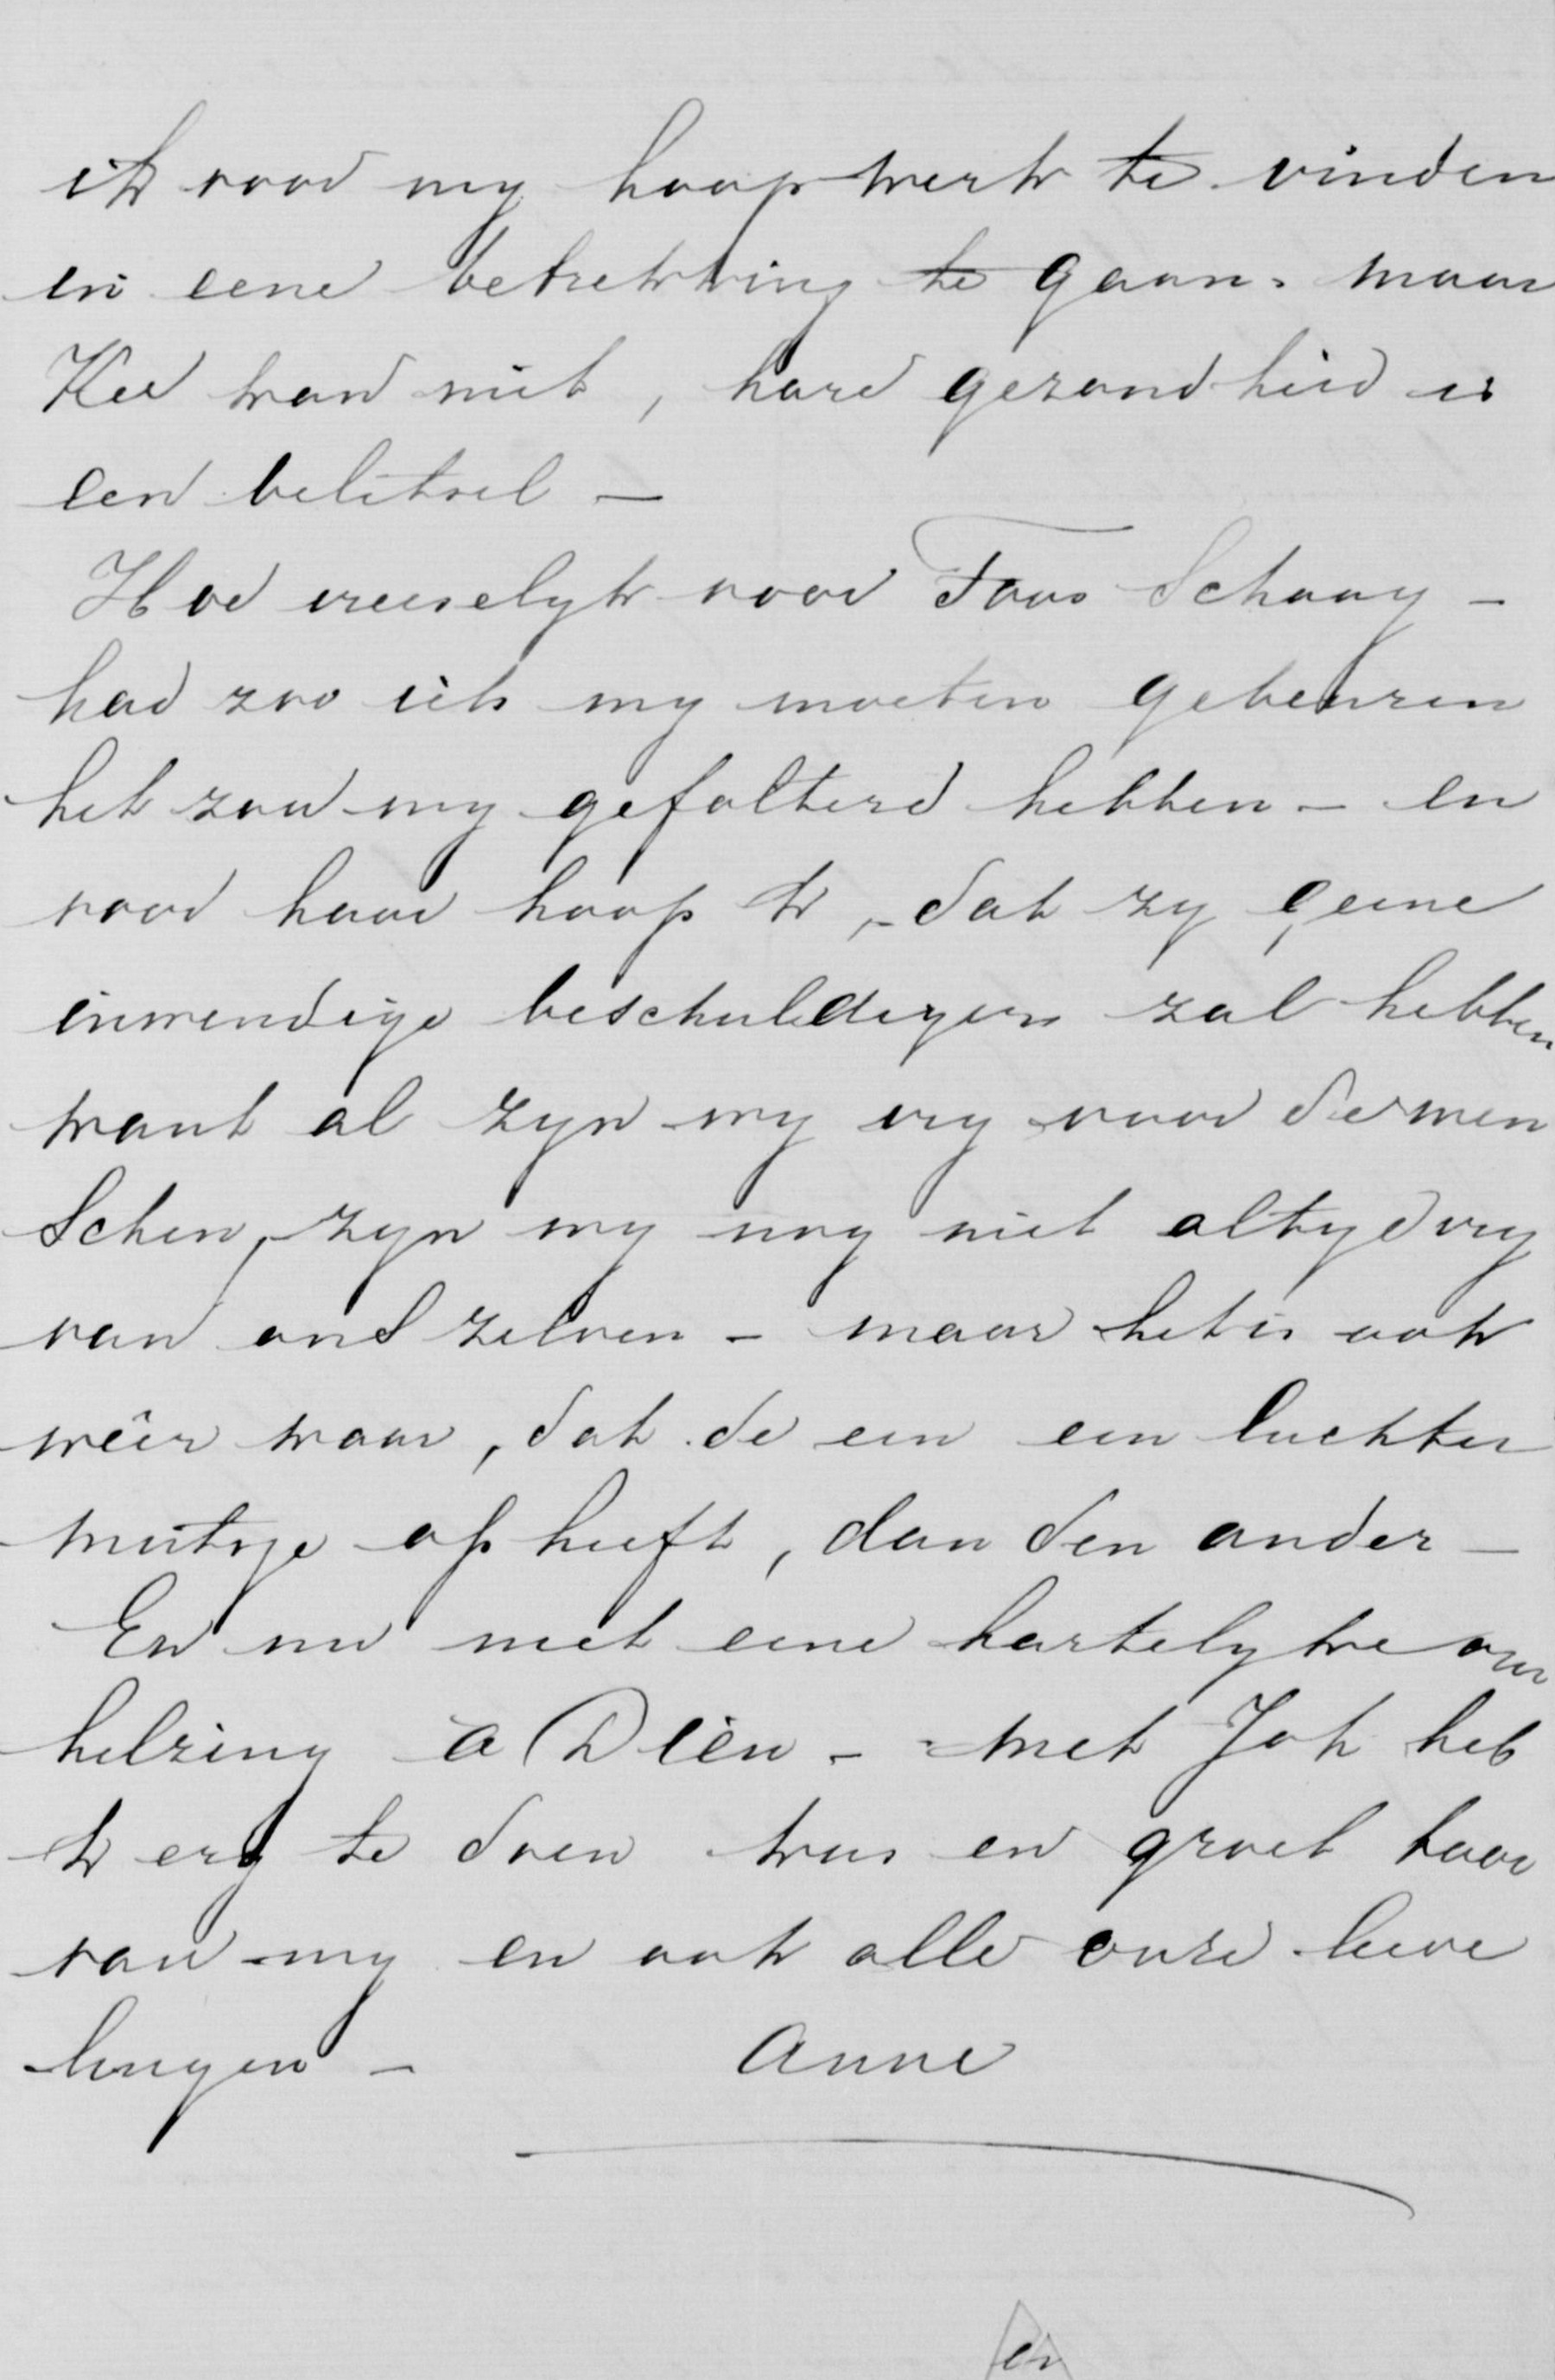 ik voor my hoop werk te vinden
in eene betrekking te gaan. maar
Kee kan niet, hare gezondheid is
een beletsel –
Hoe vreeselyk voor Toos Schaay –
had zoo iets my moeten gebeuren
het zou my gefolterd hebben – en
voor haar hoop 'k, dat zy geene
inwendige beschuldigers zal hebben
want al zyn wy vry voor de men
schen, zyn wy nog niet altyd vry
van ons zelven – maar het is ook
wêer waar, dat de een een luchter
mutsje op heeft, dan den ander –
En nu met eene hartelyke om
helzing a Dien – met Joh heb
'k erg te doen kus en groet haar
van my en ook alle onze lieve
lingen – Anne